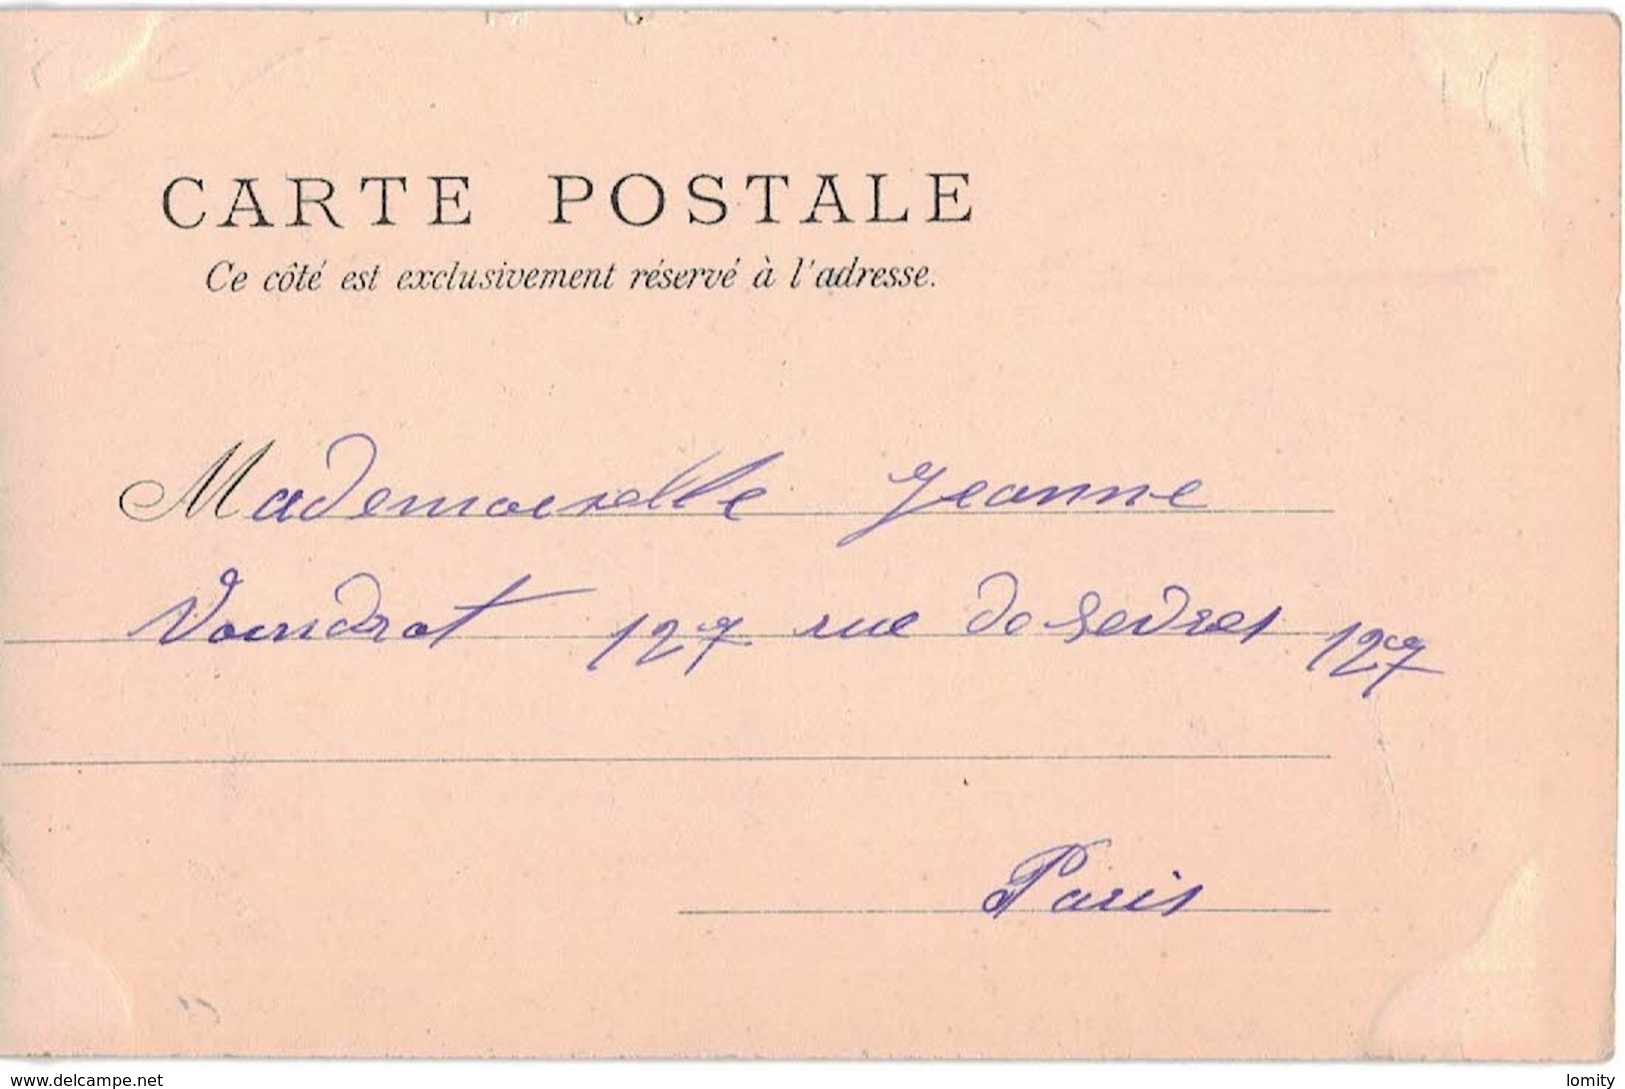 CARTE POSTALE
Ce côté est exclusivement réservé à l'adresse.
Mademoiselle Jeanne
Voindrot 127 rue de Sevres 127
Paris
www.delcampe.net
lomity